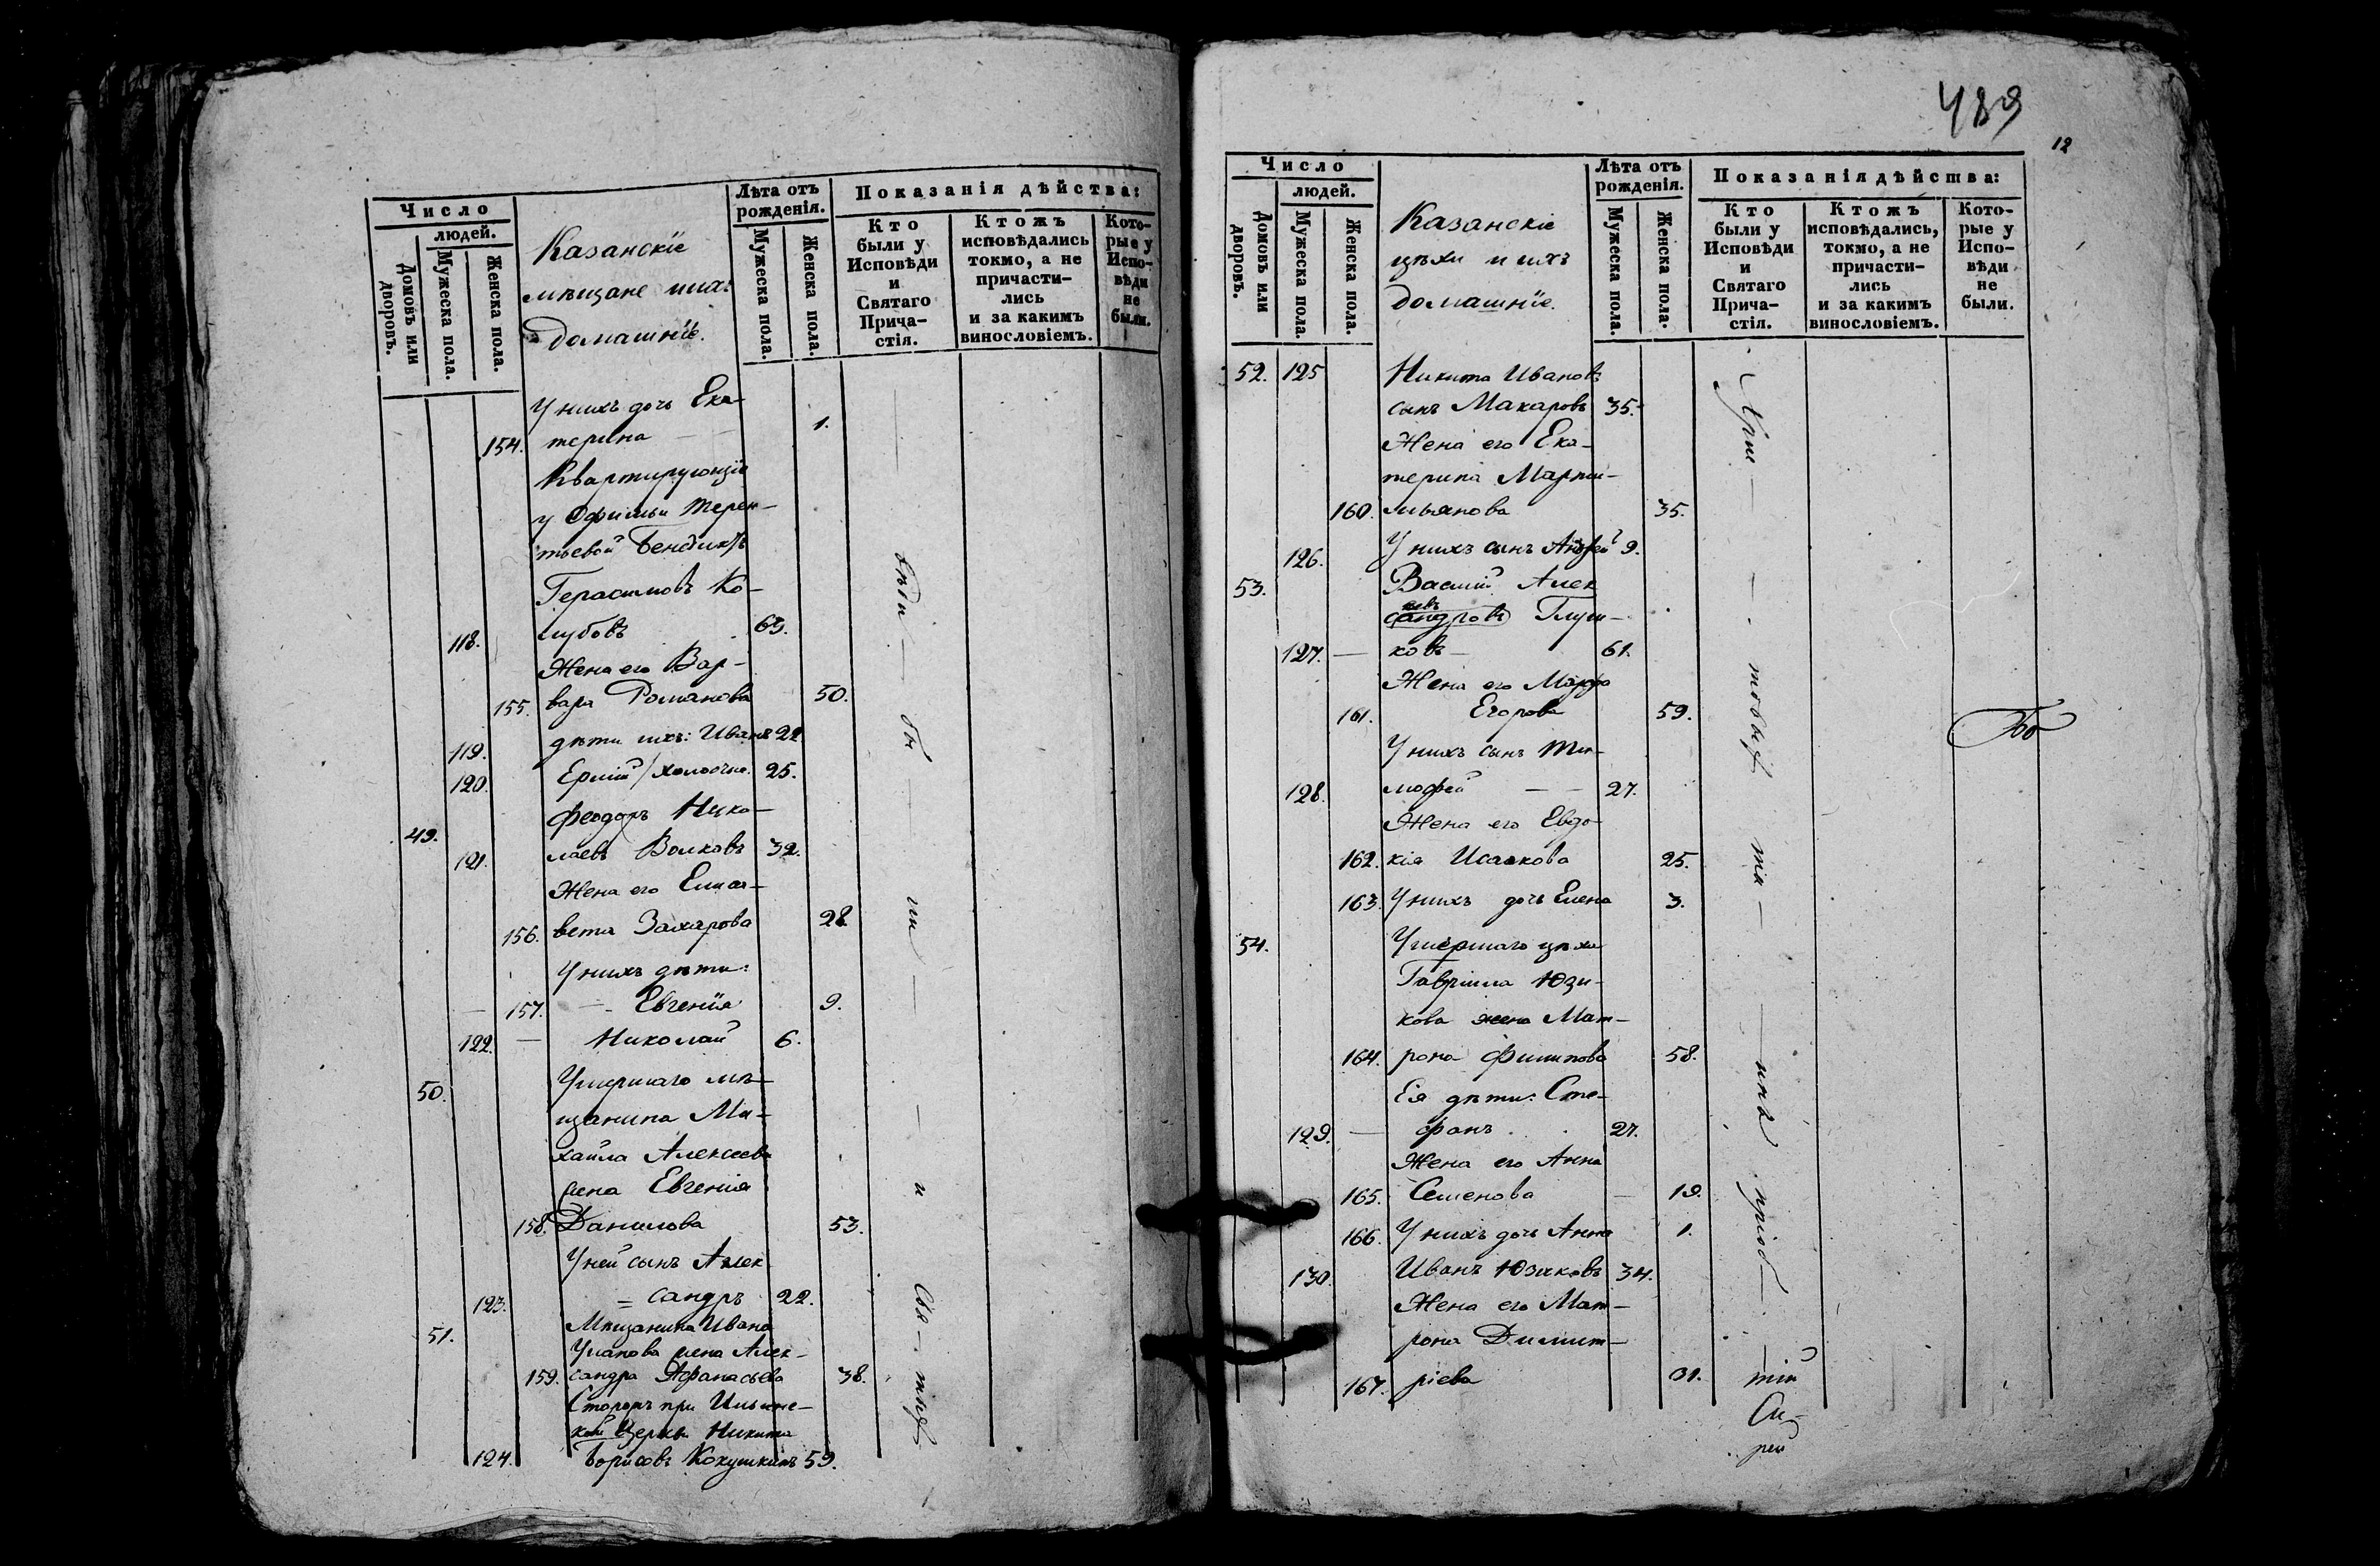 Число
людей.
Домовъ или дворовъ.
Мужеска пола.
Женска пола.
Казанскіе
мѣщане и ихъ
домашніе.
Лѣта отъ
рожденія.
Мужеска пола.
Женска пола.
Показанія дѣйства:
Кто
были у
Исповѣди
и
Святаго
Прича-
стія.
Ктожъ
исповѣдались
токмо, а не
причасти-
лись
и за какимъ
винословіемъ.
Кото-
рые у
Испо-
вѣди
не
были.
У нихъ дочь Ека-
154. терина 1.
Квартирующіе
у Офимьи Терен-
тьевой
Герасимовъ Ко-
118. лубовъ 63.
Жена его Вар-
155. вара Романова 50.
119. дѣти ихъ: Иванъ 22.
120. 25.
49. Феодоръ Нико-
121. лаевъ Волковъ 32.
Жена его Елиса-
156. вета Захарова 28.
У нихъ дѣти:
157. Евгенія 9.
122. Николай 6.
50. Умершаго мѣ-
щанина Ми-
хаила Алексѣева
жена Евгенія
158. Данилова 53.
У ней сынъ Алек
123. = сандръ 22.
51. Мѣщанина Ивана
жена Алек-
159. сандра Афанасьева 38.
Сторожъ при Ильинс-
кой Церкви Никита
124. Борисовъ Кокушкинъ 59.
489
12
Число
людей.
Домовъ или дворовъ.
Мужеска пола.
Женска пола.
Казанскіе
цѣхи и ихъ
домашніе.
Лѣта отъ
рожденія.
Мужеска пола.
Женска пола.
Показанія дѣйства:
Кто
были у
Исповѣди
и
Святаго
Прича-
стія.
Ктожъ
исповѣдались,
токмо, а не
причасти-
лись
и за какимъ
винословіемъ.
Кото-
рые у
Испо-
вѣди
не
были.
52. 125 Никита Ивановъ
сынъ Макаровъ 35.
Жена его Ека-
терина
160. 35.
126. У нихъ сынъ Андрей 9.
53. Василій Алек
сѣевъ
сандровъ Глуш-
127. ковъ 61.
Жена его Марфа
161. Егорова 59.
У нихъ сынъ Ти-
128. мофей 27.
Жена его Евдо-
162. кія Исакова 25.
163. У нихъ дочь Елена 3.
54. Умершаго цѣхи
Гавріила Юзи-
кова жена Мат-
164. рона Филипова 58.
Ея дѣти: Сте-
129. фанъ 27.
Жена его Анна
165. Семенова 19.
166. У нихъ дочь Анна 1.
130. Иванъ Юзиковъ 34.
Жена его Мат-
рона Димит-
167. ріева 31.